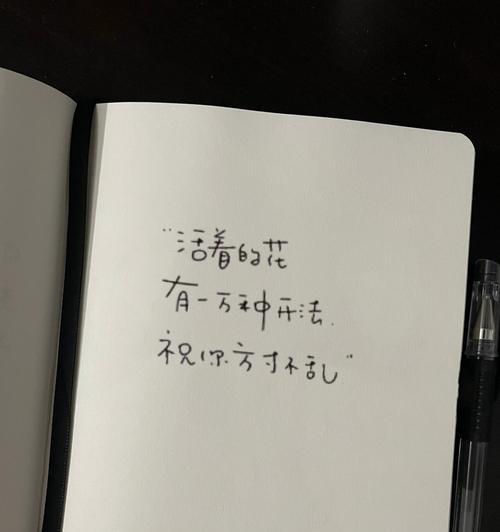 “活着的花
有一万种开法.
祝你方寸不乱”